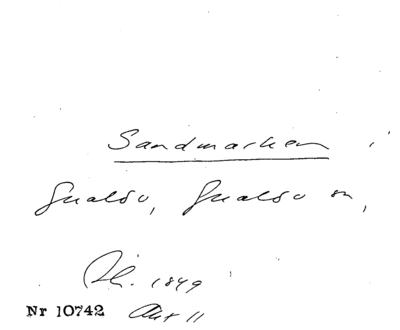 Sandmarken i
Gualöv, Gualöv sn,
Sk. 1849
Nr 10742 Akt 11